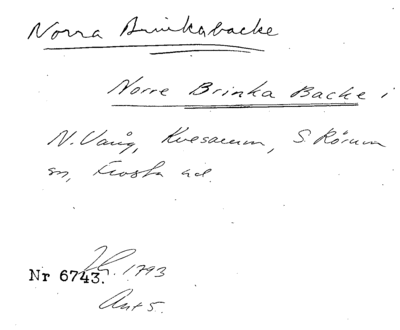 Norra Brinkabacke
Norre Brinka Backe i
N. Vång, Kvesarum, S. Rörum
sn, Frosta hd.
Nr 6743. 1793
Ant 5.